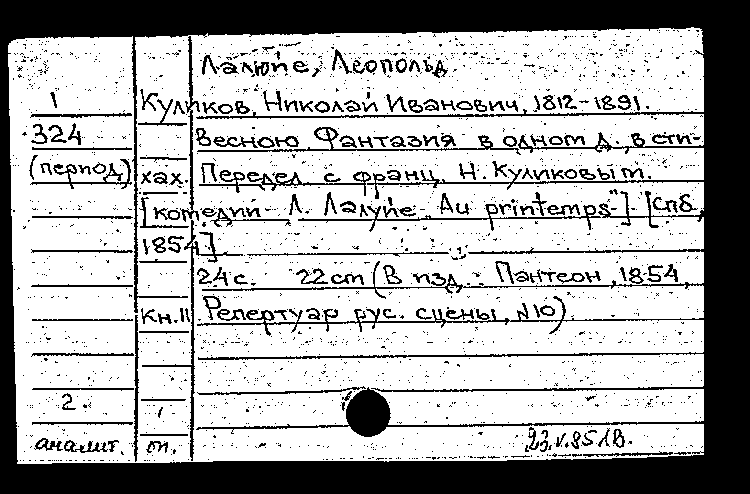 Лалюйе, Леопольд
1 Куликов, Николай Иванович, 1812-1891.
324 Весною. Фантазия в одном д., в сти-
(период) хах. Передел. с франц. Н. Куликовым.
[комедии Л. Лалуйе „Au printemps"] [Спб,
1854]
24 с. 22 cm (В изд.: Пантеон, 1854,
Кн. II Репертуар рус. сцены, №10)
2.
аналит. оп. 23.V.85 ЛВ.